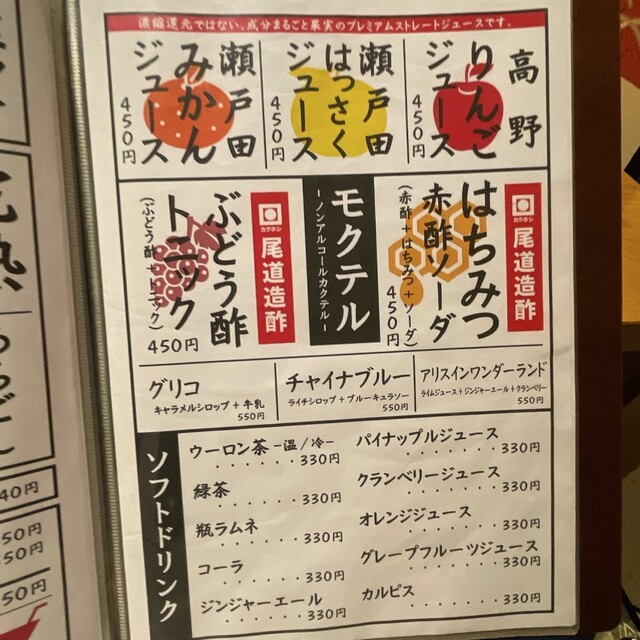 濃縮還元ではない、成分まるごと果実のプレミアムストレートジュースです。
高野
りんご
ジュース
450円
瀬戸田
はっさく
ジュース
450円
瀬戸田
みかん
ジュース
450円
カクホシ
尾道造酢
はちみつ
赤酢ソーダ
(赤酢+はちみつ+ソーダ)
450円
モクテル
-ノンアルコールカクテル-
カクホシ
尾道造酢
ぶどう酢
トニック
(ぶどう酢+トニック)
450円
グリコ
キャラメルシロップ+牛乳
550円
チャイナブルー
ライチシロップ+ブルーキュラソー
550円
アリスインワンダーランド
ライムジュース+ジンジャーエール+クランベリー
550円
ソフトドリンク
ウーロン茶-温/冷-
・・・・・・330円
緑茶
・・・・・・・330円
瓶ラムネ
・・・・・・・330円
コーラ
・・・・・・・330円
ジンジャーエール
・・・・・・・330円
パイナップルジュース
・・・・・・・330円
クランベリージュース
・・・・・・・330円
オレンジジュース
・・・・・・・330円
グレープフルーツジュース
・・・・・・・330円
カルピス
・・・・・・・330円
40円
50円
50円
50円